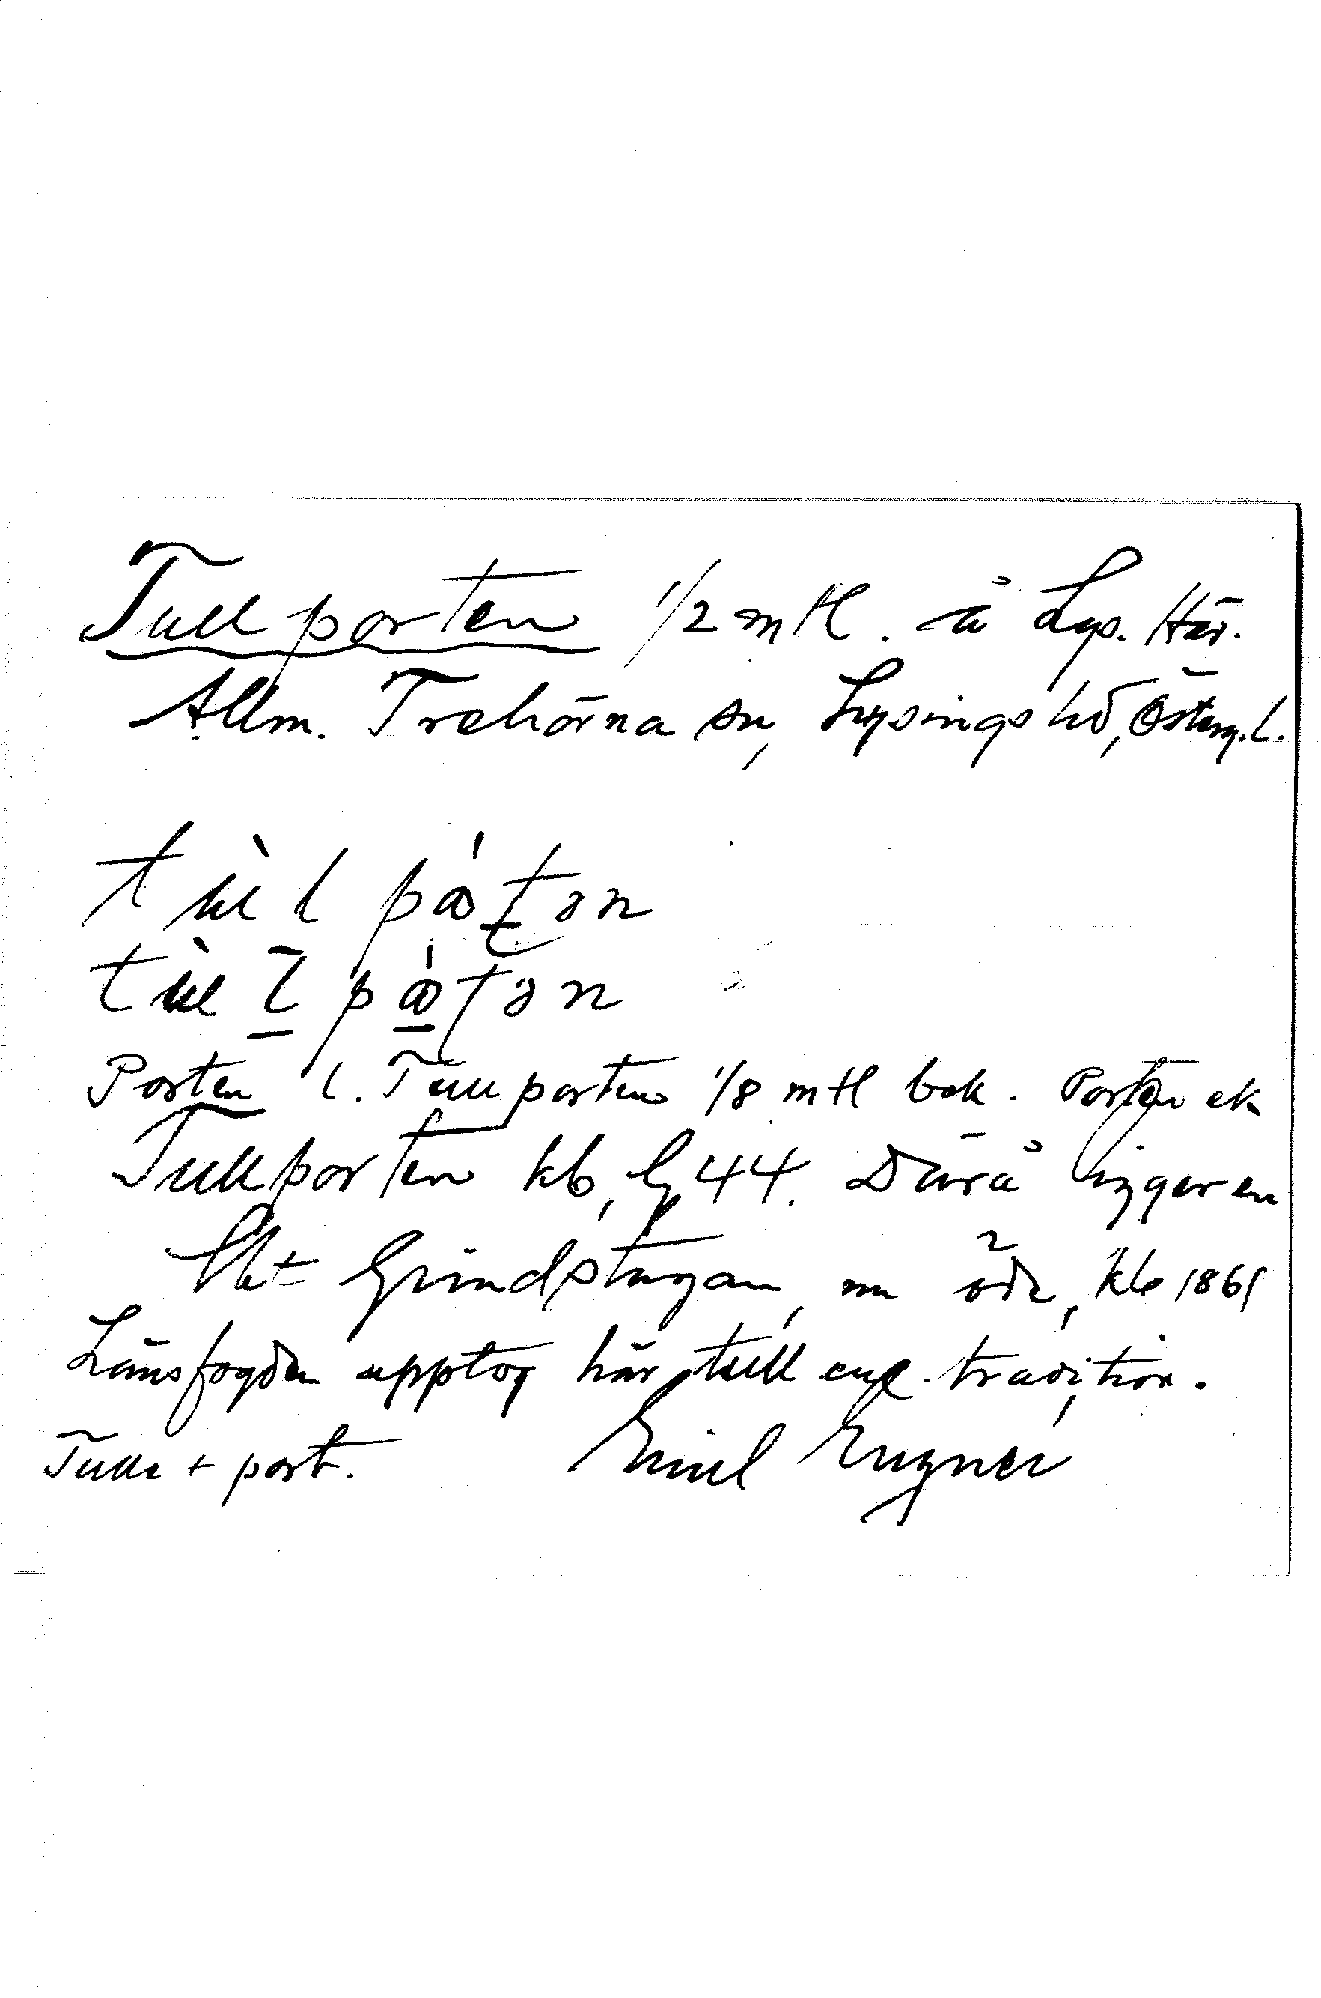 Tullporten 1/2 mtl. å Lys. Här.
Allm. Trehörna sn, Lysings hd, Österg. l.
tùl páʈən
tùl páʈən
Porten l. Tullporten 1/8 mtl bok. Porten ek
Tullporten kb, 44. Därå ligger en
lht Grindstugan, nu öde, kb 1865
Länsfogden upptog här tull enl. tradition.
Tull + port. Emil Engner